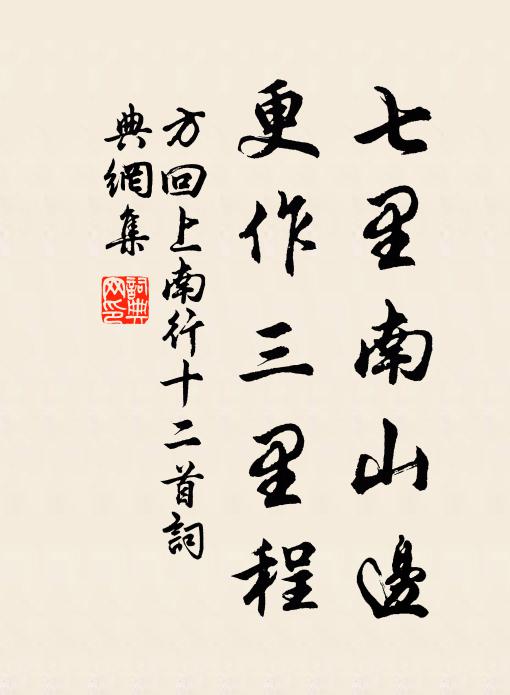 七里南山邊
更作三里程
方回上南行十二首詞
典網集
詞典網印